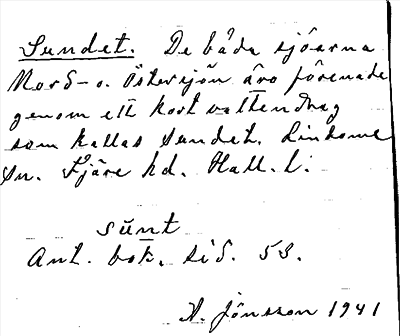 Sundet. De båda sjöarna
Nord- o. Östersjön äro förenade
genom ett kort vattendrag
som kallas Sundet. Lindome
Sn. Fjäre hd. Hall. l.
sunt
Ant. bok. sid. 53.
A. Jönsson 1941